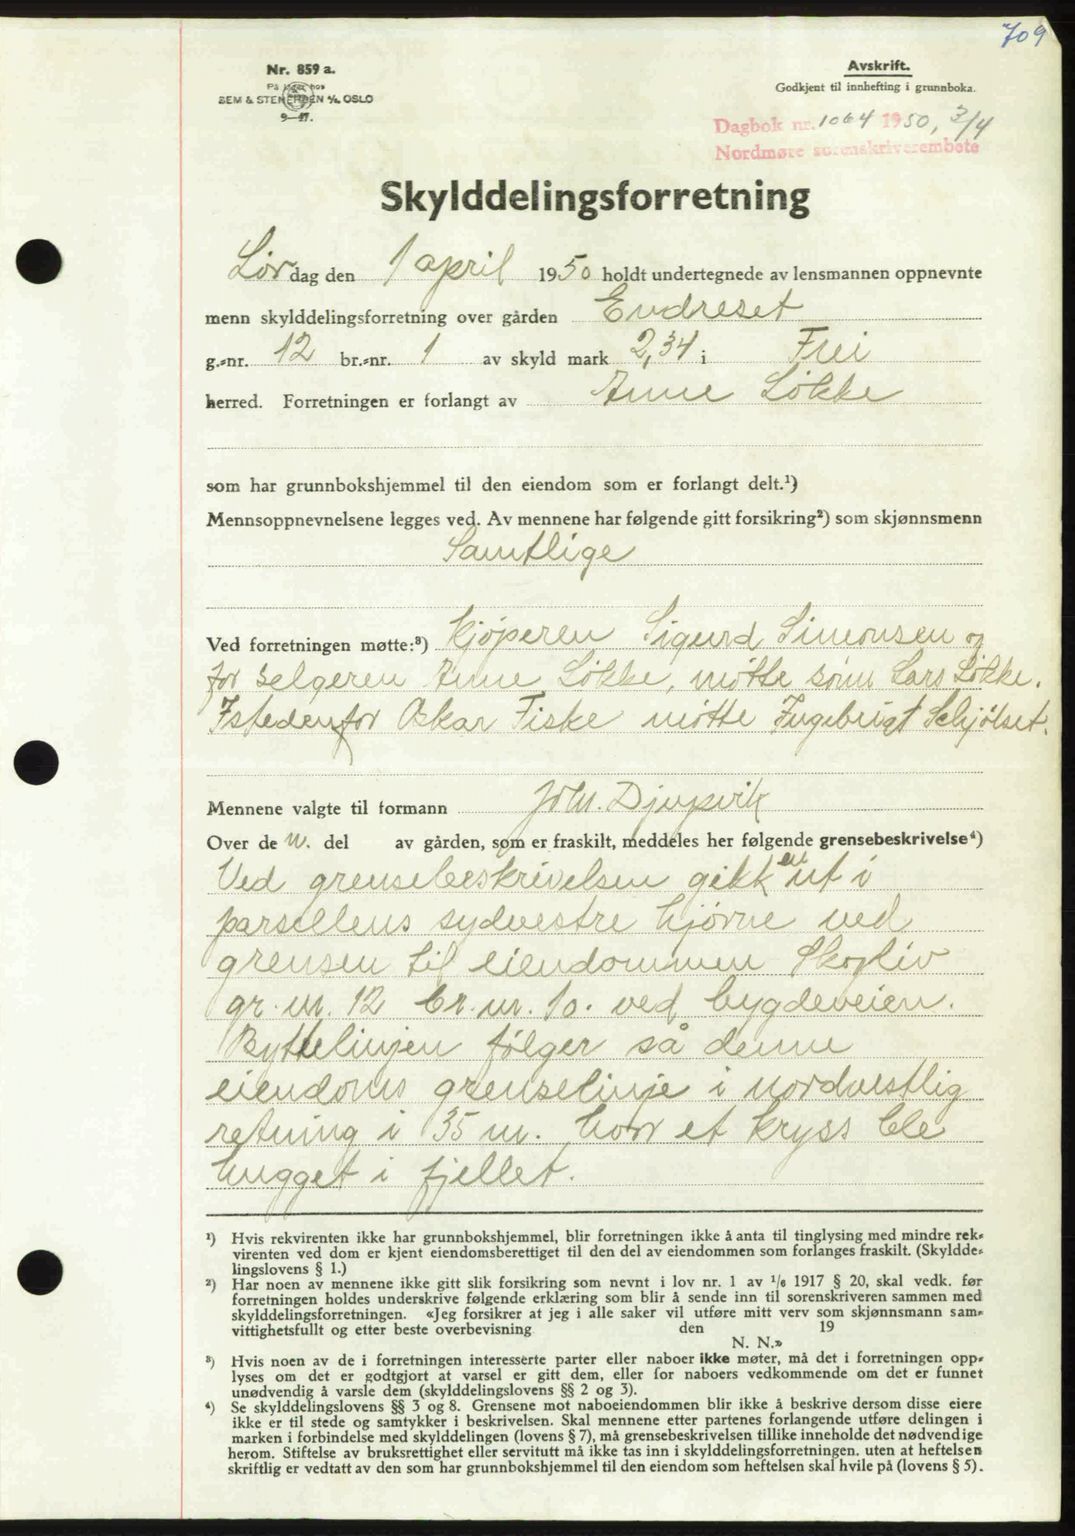 709
Nr. 859 a.
På lager hos
SEM & STENERSEN A/S OSLO
9—47.
Avskrift.
Godkjent til innhefting i grunnboka.
Dagbok nr. 1064 1950, 3/4
Nordmøre sorenskriverembete
Skylddelingsforretning
Lørdag den 1 april 1950 holdt undertegnede av lensmannen oppnevnte
menn skylddelingsforretning over gården Endreset
g.-nr. 12 br.-nr. 1 av skyld mark 2,34 i Frei
herred. Forretningen er forlangt av Anne Løkke
som har grunnbokshjemmel til den eiendom som er forlangt delt.¹)
Mennsoppnevnelsene legges ved. Av mennene har følgende gitt forsikring²) som skjønnsmenn
Samtlige
Ved forretningen møtte:³) Kjøperen Sigurd Simonsen og
for selgeren Anne Løkke, møtte sønn Lars Løkke.
Istedenfor Oskar Fiske møtte Ingebrigt Schjølset.
Mennene valgte til formann Joh. Djupvik
Over de n. del av gården, som er fraskilt, meddeles her følgende grensebeskrivelse⁴)
Ved grensebeskrivelsen gikk en ut i
parsellens sydvestre hjørne ved
grensen til eiendommen Skogliv
gr. nr. 12 br. nr. 10. ved bygdeveien.
Byttelinjen følger så denne
eiendoms grenselinje i nordvestlig
retning i 35 m. hvor et kryss ble
hugget i fjellet.
¹) Hvis rekvirenten ikke har grunnbokshjemmel, blir forretningen ikke å anta til tinglysing med mindre rek-
virenten ved dom er kjent eiendomsberettiget til den del av eiendommen som forlanges fraskilt. (Skyldde-
lingslovens § 1.)
²) Har noen av mennene ikke gitt slik forsikring som nevnt i lov nr. 1 av 1/6 1917 § 20, skal vedk. før
forretningen holdes underskrive følgende erklæring som blir å sende inn til sorenskriveren sammen med
skylddelingsforretningen. «Jeg forsikrer at jeg i alle saker vil utføre mitt verv som skjønnsmann sam-
vittighetsfullt og etter beste overbevisning den 19
N. N.»
³) Hvis noen av de i forretningen interesserte parter eller naboer ikke møter, må det i forretningen opp-
lyses om det er godtgjort at varsel er gitt dem, eller for naboers vedkommende om det er funnet
unødvendig å varsle dem (skylddelingslovens §§ 2 og 3).
⁴) Se skylddelingslovens §§ 3 og 8. Grensene mot naboeiendommen blir ikke å beskrive dersom disse eiere
ikke er til stede og samtykker i beskrivelsen. Skal mennene etter partenes forlangende utføre delingen i
marken i forbindelse med skylddelingen (lovens § 7), må grensebeskrivelsen tillike inneholde det nødvendige
herom. Stiftelse av bruksrettighet eller servitutt må ikke tas inn i skylddelingsforretningen, uten at heftelsen
skriftlig er vedtatt av den som har grunnbokshjemmel til den eiendom som heftelsen skal hvile på (lovens § 5).